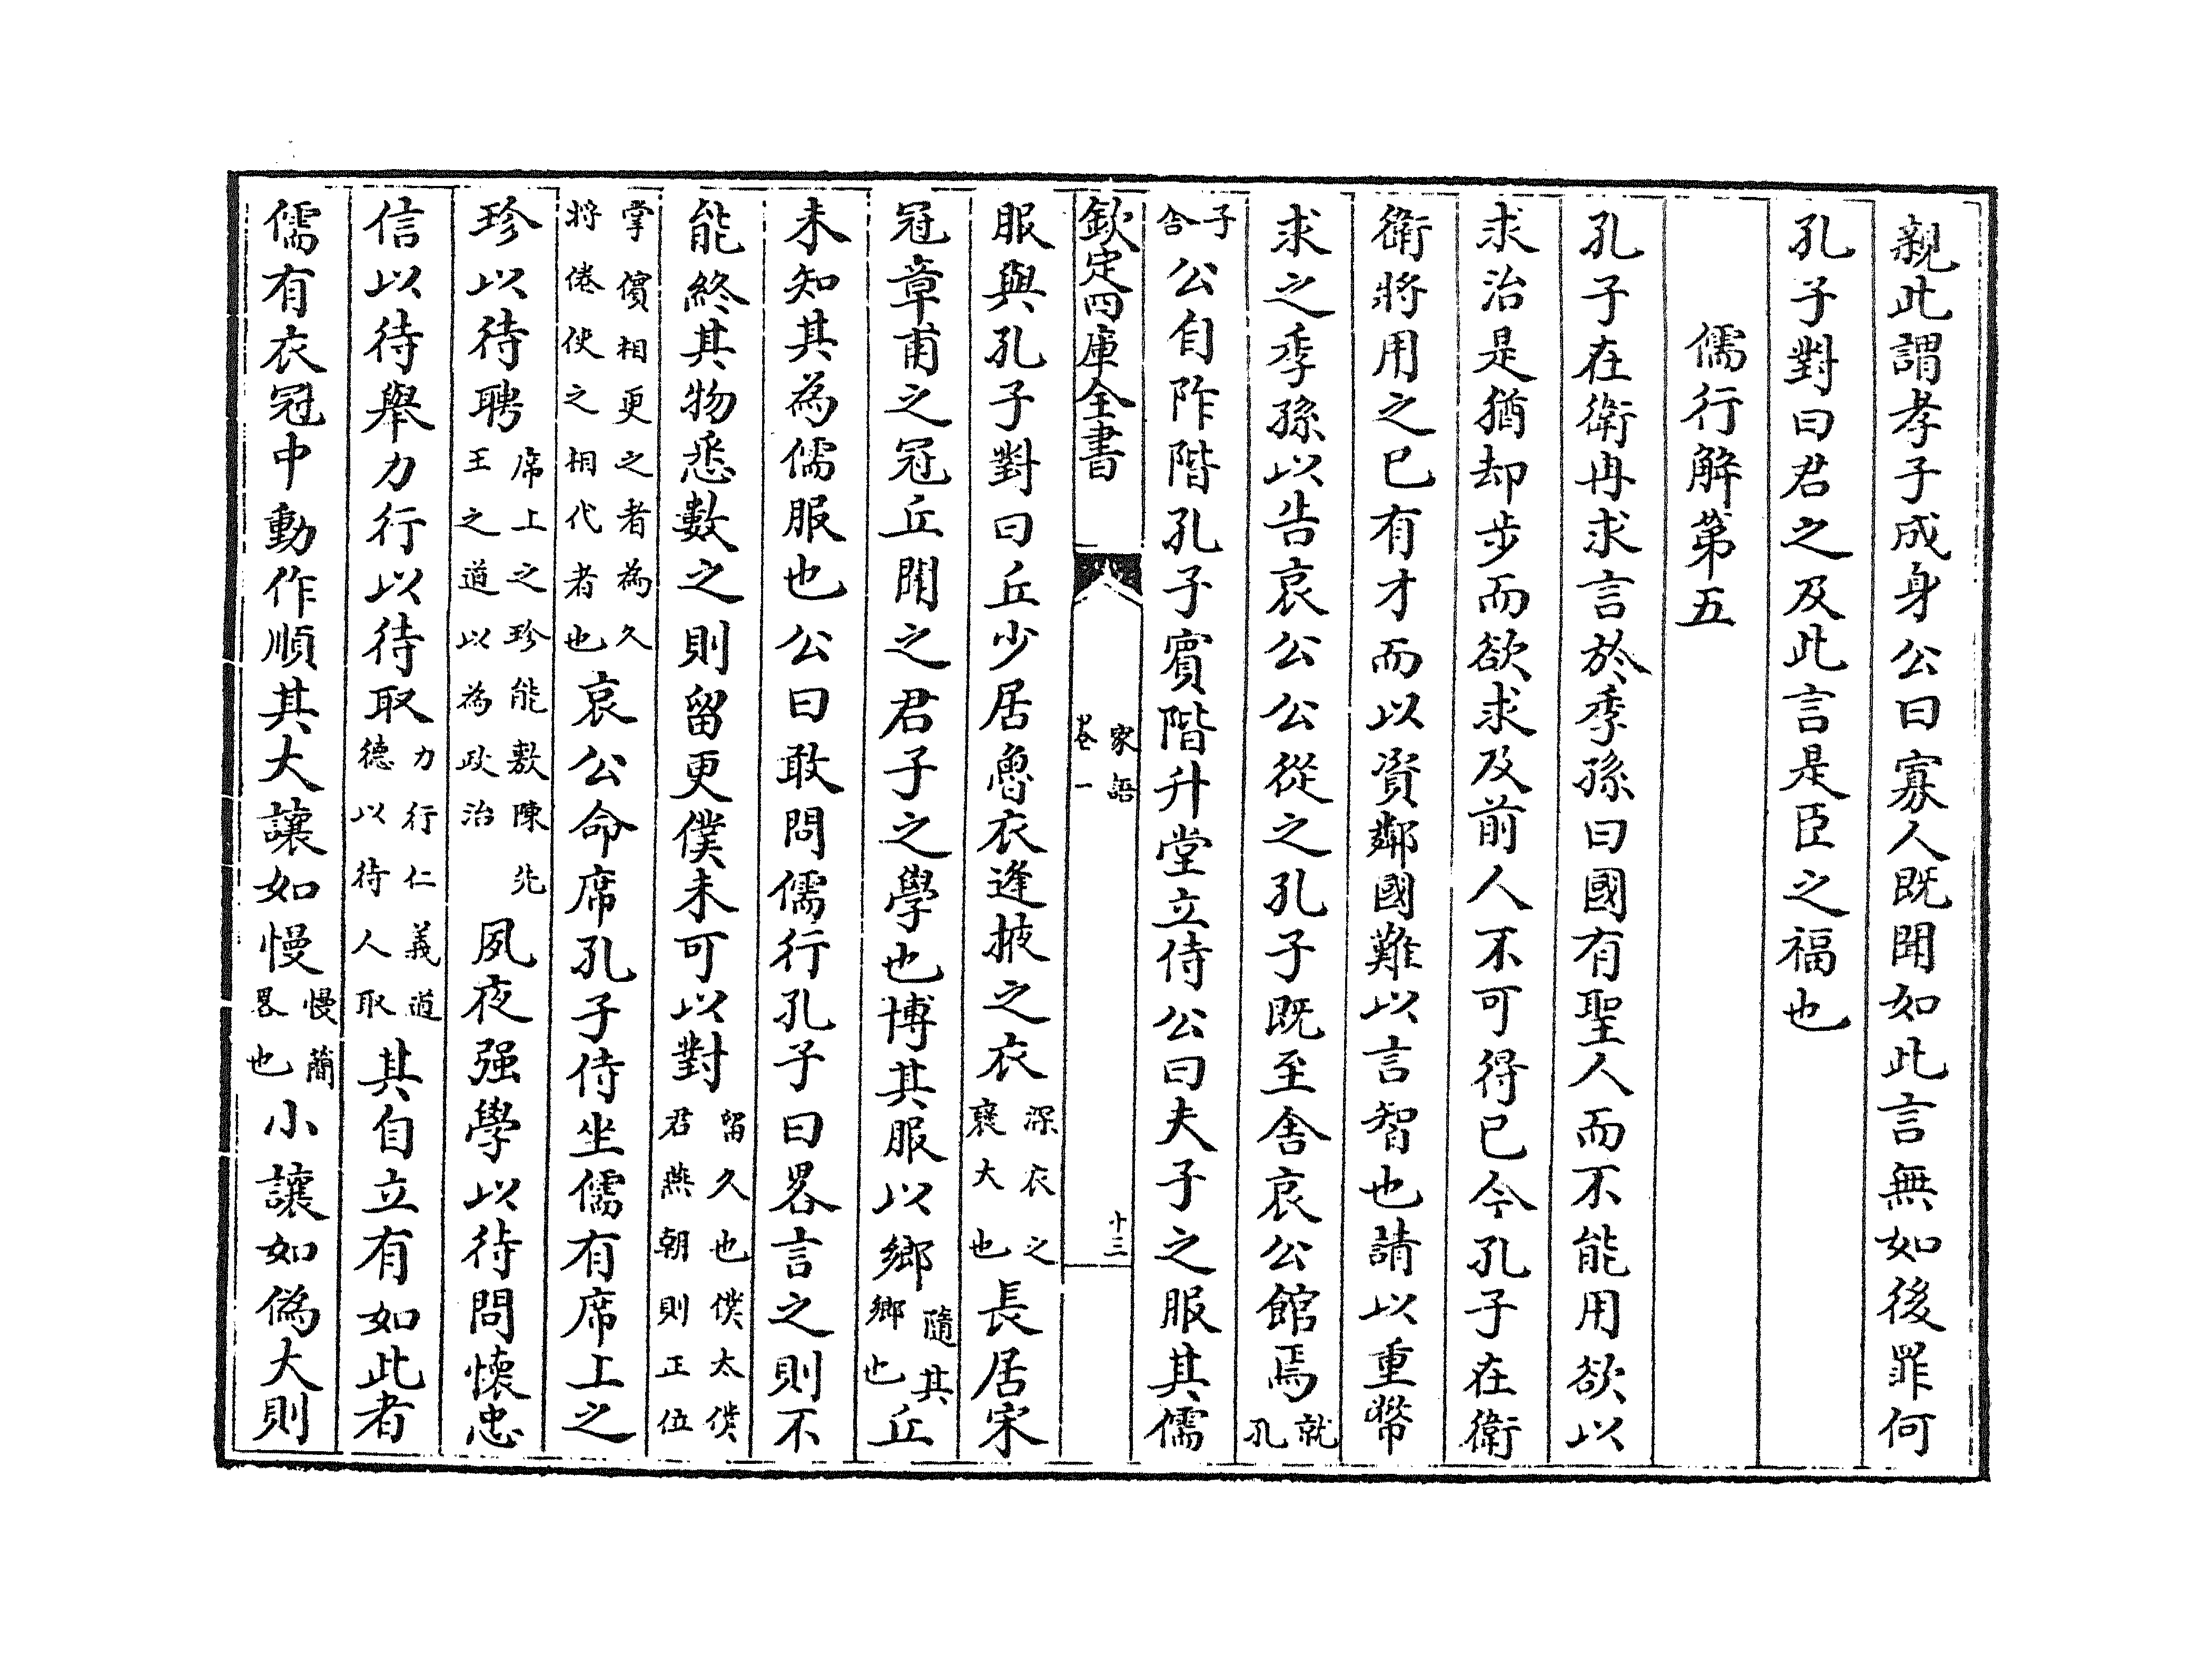 親此謂孝子成身公曰寡人既聞如此言無如後罪何
孔子對曰君之及此言是臣之福也
儒行解第五
孔子在衛冉求言於季孫曰國有聖人而不能用欲以
求治是猶却步而欲求及前人不可得已今孔子在衛
衛將用之已有才而以資鄰國難以言智也請以重幣
求之季孫以告哀公公從之孔子既至舍哀公館焉就孔
子舍公自阼階孔子賓階升堂立侍公曰夫子之服其儒
欽定四庫全書
家語
卷一
十三
服與孔子對曰丘少居魯衣逢掖之衣深衣之襃大也長居宋
冠章甫之冠丘聞之君子之學也博其服以鄉隨其鄉也丘
未知其為儒服也公曰敢問儒行孔子曰畧言之則不
能終其物悉數之則留更僕未可以對留久也僕太僕君燕朝則正位
掌儐相更之者為久將倦使之相代者也哀公命席孔子侍坐儒有席上之
珍以待聘席上之珍能敷陳先王之道以為政治夙夜强學以待問懷忠
信以待舉力行以待取力行仁義道德以待人取其自立有如此者
儒有衣冠中動作順其大讓如慢慢簡畧也小讓如偽大則